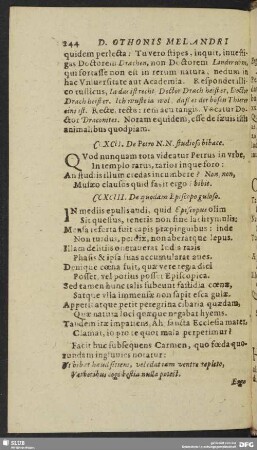 244 D. OTHONIS MELANDRI
quidem perfecta: Tu vero stipes, inquit, investi-
gas Doctorem Drachen, non Doctorem
qui fortasse non est in rerum natura, nedum in
hac Universitate aut Academia. Respondet illi-
co rusticus, Ja das ist recht Doctor Drach heister, Doctor
Drach heister. Ich wuste as wol, dass es der bosen Thiere
eins ist. Recte, recto: rem acu tangis. Vocatur Do-
ctor Draconites. Noram equidem, esse de sævis illis
animalibus quodpiam.
CCXCII. De Petro N.N. studioso bibace.
QVod nunquam tota videatur Petrus in urbe,
In templo rarus, rarior inque foro:
An studiis illum credas incumbere? Non, non,
Musæo clausus quid facit ergo? bibit.
CCXCIII. De quodam Episcopo guloso.
IN mediis epulis andi, quid Episcopus olim
Sit questus, teneris non sine lachrymulis:
Mensa referta fuit capis præpinguibus: inde
Non turdus, perdix, non aberatque lepus.
Illam delitiis oneraverat Iodis rasis
Phasis & ipsa suas accumularat aves.
Denique cœna fuit, quæ vere regia dici
Posset, vel potius posset Episcopica.
Sed tamen hunc talis subeunt fastidia cœnæ,
Satque illa immensæ non sapit esca gulæ.
Apperitatque petit peregrina cibaria quædam,
Quæ natura loci quæque negabat hyems.
Tandem iræ impatiens, Ah sancta Ecclesia mater,
Clamat, io pro te quot mala perpetimur!
Facit huc subsequens Carmen, quo fœda quo-
rundam ingluvies notatur:
Ut bibat homo sitiens, vel edat jam ventre repleto,
Verberibus cogi bestia nulla potest.
Ergo